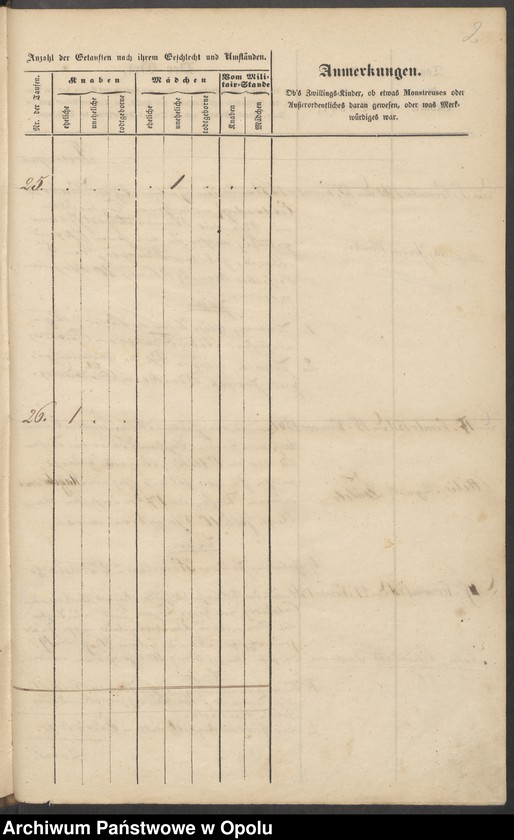 2
Anzahl der Getauften nach ihrem Geschlecht und Umständen.
Nr. der Taufen.
Knaben
Mädchen
Vom Mili-
tair-Stande
eheliche
uneheliche
todtgeborne
eheliche
uneheliche
todtgeborne
Knaben
Mädchen
Anmerkungen.
Ob's Zwillings-Kinder, ob etwas Monstreuses oder
Außerordentliches daran gewesen, oder was Merk-
würdiges war.
25. . . . . 1 . . .
26. 1 . .
Archiwum Państwowe w Opolu